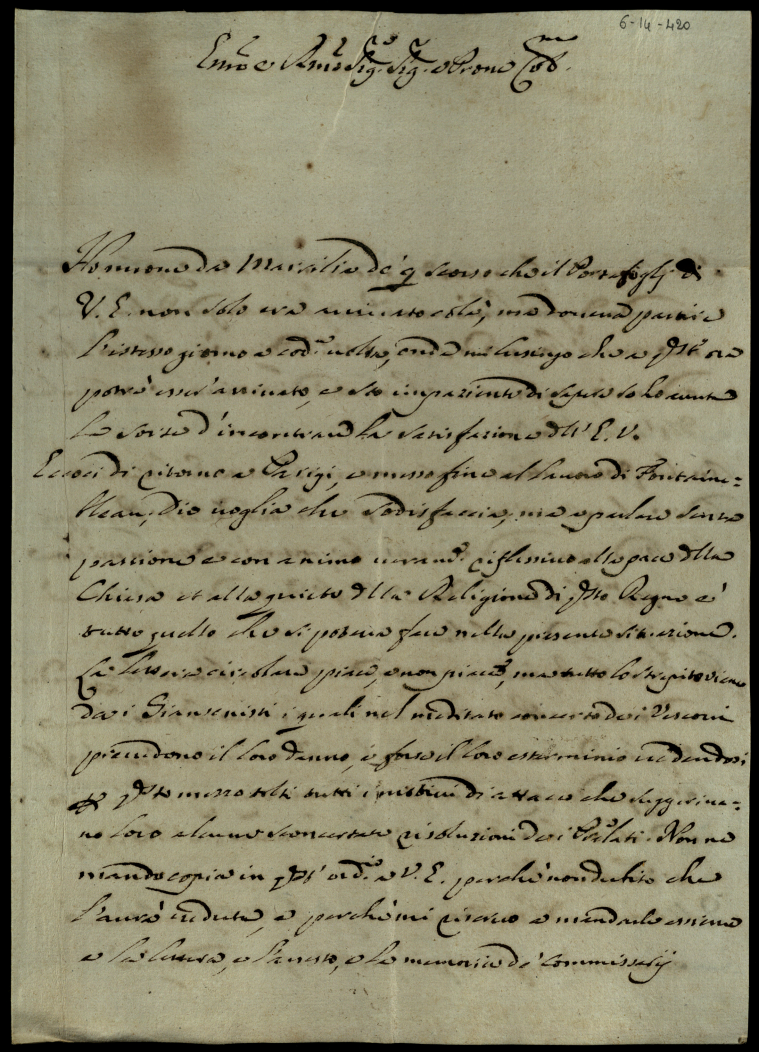 6-14-420
Emo e Rmo Sig. Sig. e Prone Colmo
Ho nuove da Marsilia de' 9 scorso che il Portafogli di
V. E. non solo era arrivato colà, ma doveva partire
l'istesso giorno a cod.ª volta, onde mi lusingo che a qst' ora
potrà esser arrivato, e sto impaziente di sapere se ho avuta
la sorte d'incontrare la satisfazione dll' E. V.
Eccoci di ritorno a Parigi, e messo fine al lavoro di Fontaine=
bleau, Dio voglia che sodisfaccia, ma a parlare senza
passione e con animo veram.e riflessivo alla pace dlla
Chiesa et alla quiete dlla Religione di qsto Regno è
tutto quello che si poteva fare nella presente situazione.
La lettera circolare piace, e non piace, ma tutto lo strepito viene
dai Giansenisti i quali nel meditato concerto dei Vescovi
prevedono il loro danno, e forse il loro esterminio vedendosi
p qsto mezzo tolti tutti i motivi di attacco che suggeriva=
no loro alcune sconcertate risoluzioni dei Prelati. Non ne
mando copia in qst' ord.º a V. E. perché non dubito che
l'avrà veduta, e perché mi riservo a mandarle assieme
e la lettera, e l'arresto, e la memoria de' Commissarij